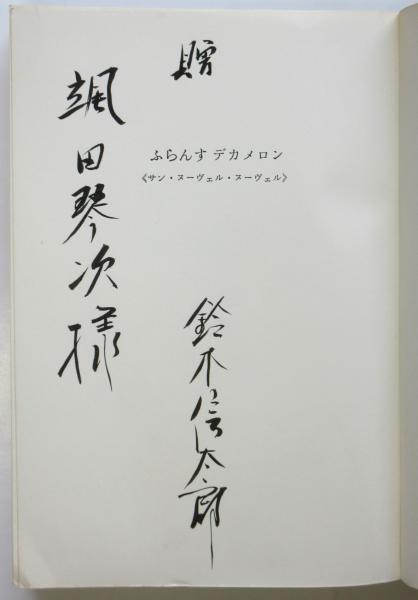 贈
颯田琴次様
ふらんすデカメロン
《サン・ヌーヴェル・ヌーヴェル》
鈴木信太郎